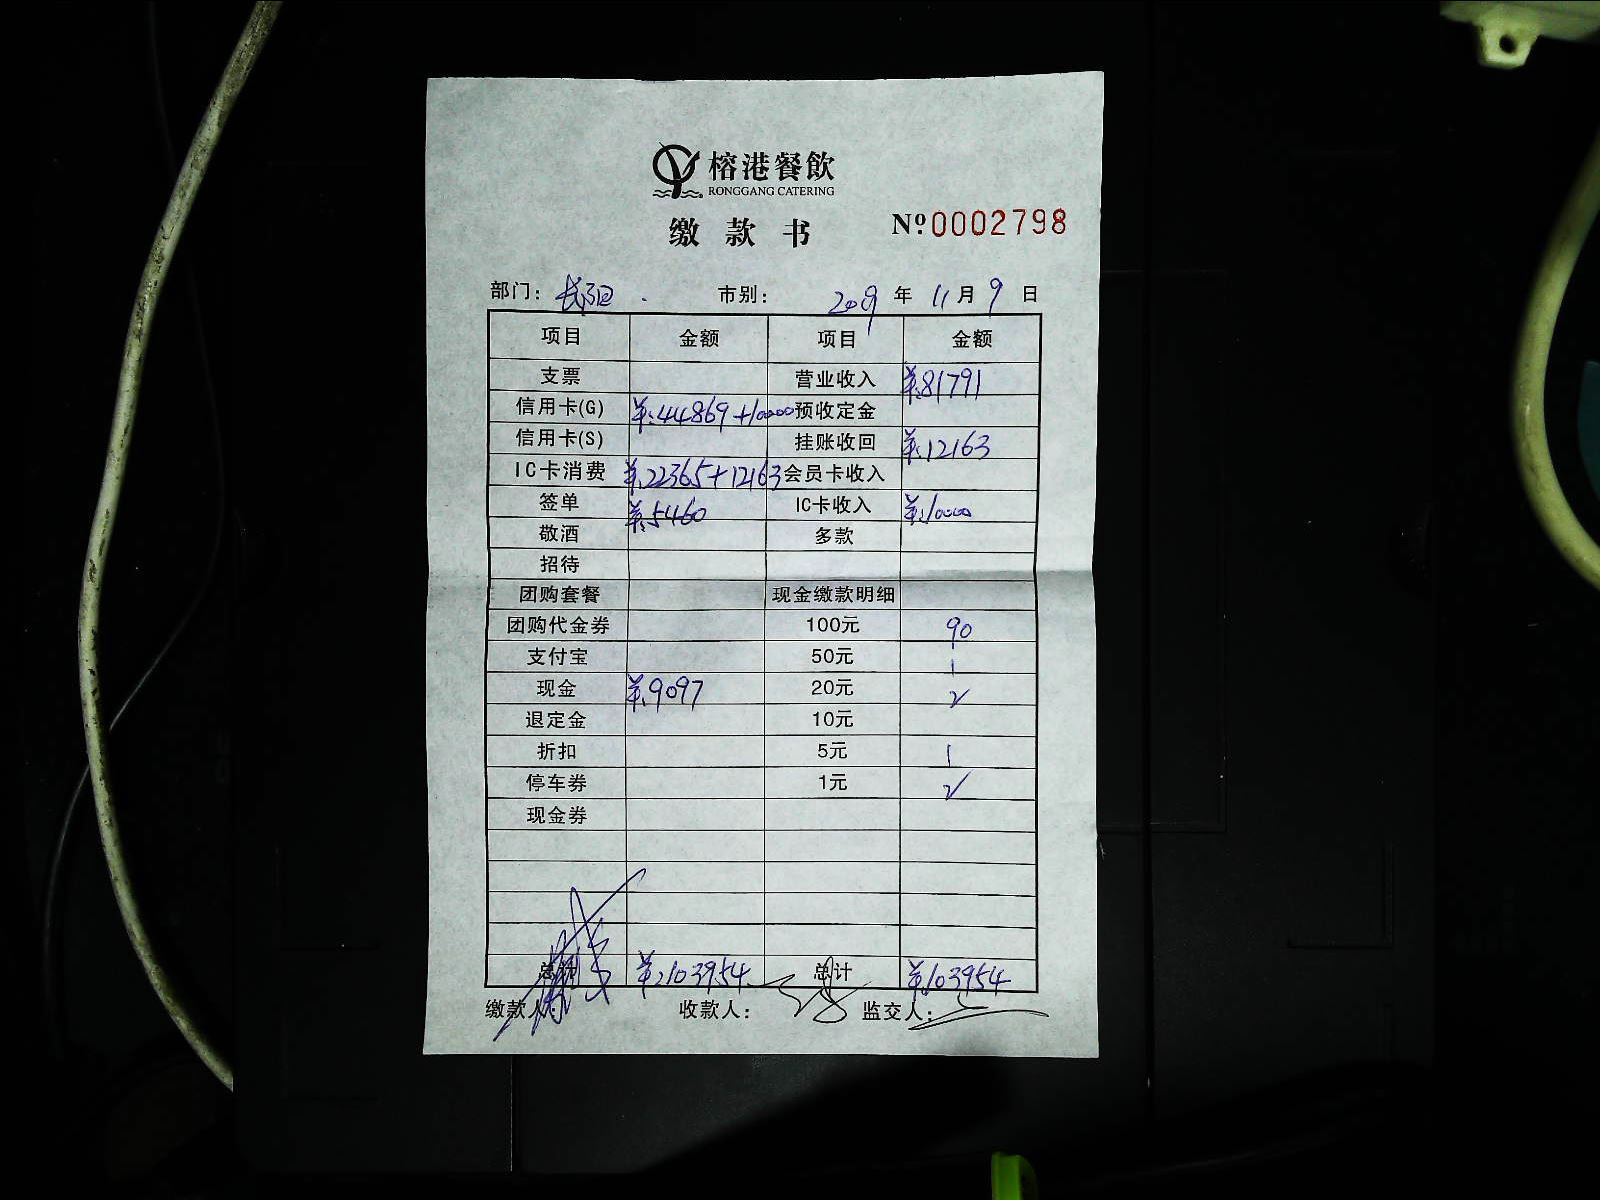 榕港餐飲
RONGGANG CATERING
缴款书
Nº 0002798
部门： 市别： 2019 年 11 月 9 日
项目 金额 项目 金额
支票 营业收入 ¥:81791
信用卡(G) ¥:44869+10000 预收定金
信用卡(S) 挂账收回 ¥:12163
IC卡消费 ¥:22365+12163 会员卡收入
签单 ¥:5460 IC卡收入 ¥:10000
敬酒 多款
招待
团购套餐 现金缴款明细
团购代金券 100元 90
支付宝 50元 1
现金 ¥:9097 20元 2
退定金 10元
折扣 5元 1
停车券 1元 2
现金券
总计 ¥:103954 总计 ¥:103954
缴款人： 收款人： 监交人：